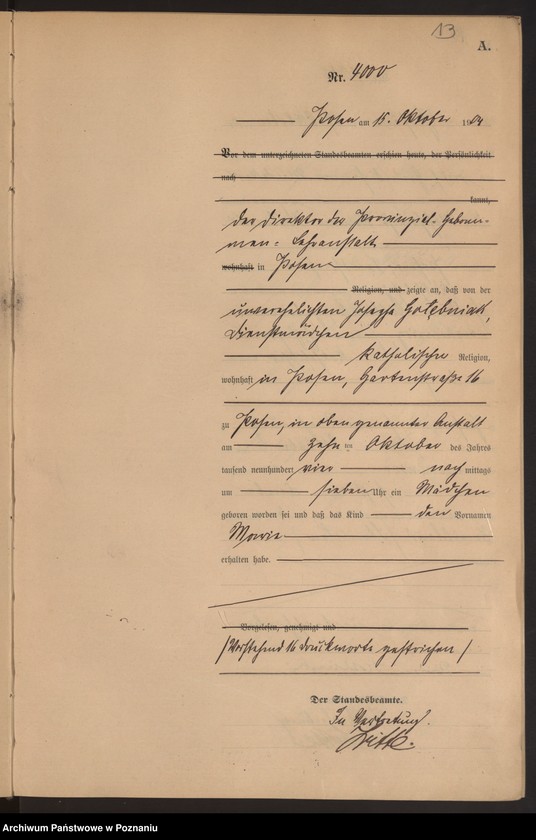 13
A.
Nr. 4000
Posen am 15. Oktober 1904
Vor dem unterzeichneten Standesbeamten erschien heute, der Persönlichkeit
nach
kannt,
der Direktor der Provinzial-Hebam-
men-Lehranstalt
wohnhaft in Posen
Religion, und zeigte an, daß von der
unverehelichten Josepha Golebniak,
Dienstmädchen
katholischer Religion,
wohnhaft in Posen, Gartenstraße 16
zu Posen, in oben genannter Anstalt
am zehn ten Oktober des Jahres
tausend neunhundert vier nach mittags
um sieben Uhr ein Mädchen
geboren worden sei und daß das Kind den Vornamen
Marie
erhalten habe.
Vorgelesen, genehmigt und
/Vorstehend 16 Druckworte gestrichen/
Der Standesbeamte.
In Vertretung.
Archiwum Państwowe w Poznaniu